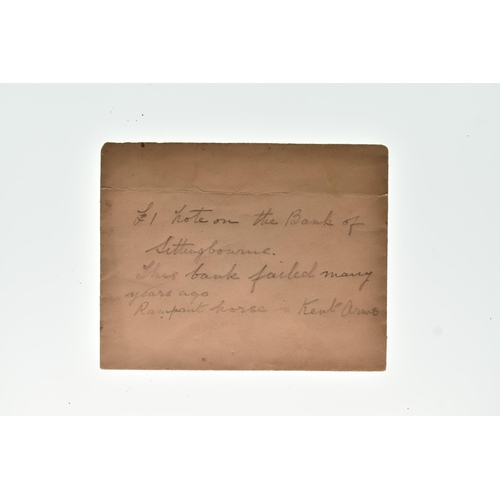 £1 note on the Bank of
Sittingbourne.
This bank failed many
years ago
Rampant horse is Kent Arms